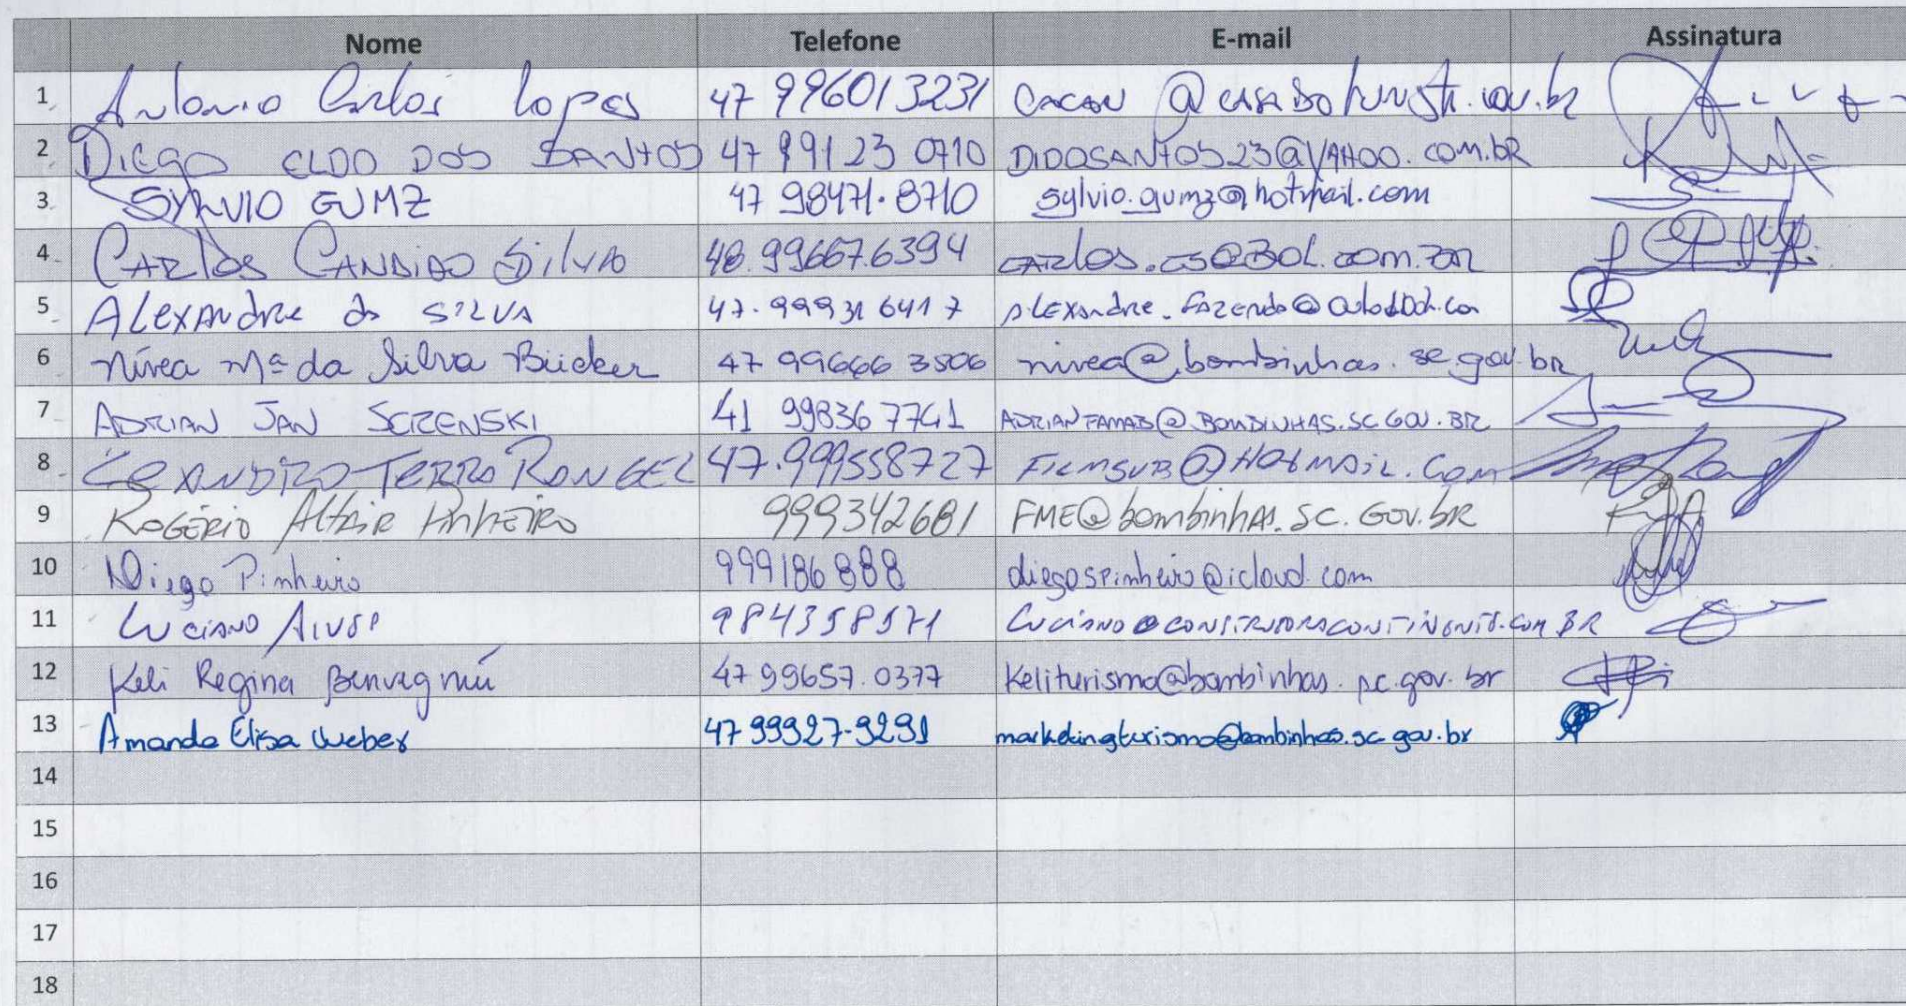 Nome Telefone E-mail Assinatura
1 Antonio Carlos Lopes 47 996013231
2 DIEGO ELDO DOS SANTOS 47 99123 0710 DIDOSANTOS23@YAHOO.COM.bR
3 SYLVIO GUMZ 47 98471.8710 sylvio.gumz@hotmail.com
4 CARLOS CANDIDO SILVA 48.99667.6394 CARLOS.CS@BOL.COM.BR
5 ALEXANdRe da SILVA 47.99931 6417
6 Nívea Mª da Silva Bücker 47 99666 3506 nivea@bombinhas.sc.gov.br
7 ADRIAN JAN SCZENSKI 41 99836 7741 ADRIANFAMAB@BOMBINHAS.SC.GOV.BR
8 LEXANDRO TERRO RONGEL 47.999558727 FILMSUB@HOtMAiL.Com
9 ROGÉRIO Altair PinhEiRo 999342681 FME@bombinhAs.SC.GOV.bR
10 Diego Pinheiro 999186888 diegospinheiro@icloud.com
11 Luciano Alves 984358571
12 Keli Regina Benvegnú 47 99657.0377 Keliturismo@bombinhas.sc.gov.br
13 Amanda Elisa Weber 47 99927-9291 marketingturismo@bombinhas.sc.gov.br
14
15
16
17
18